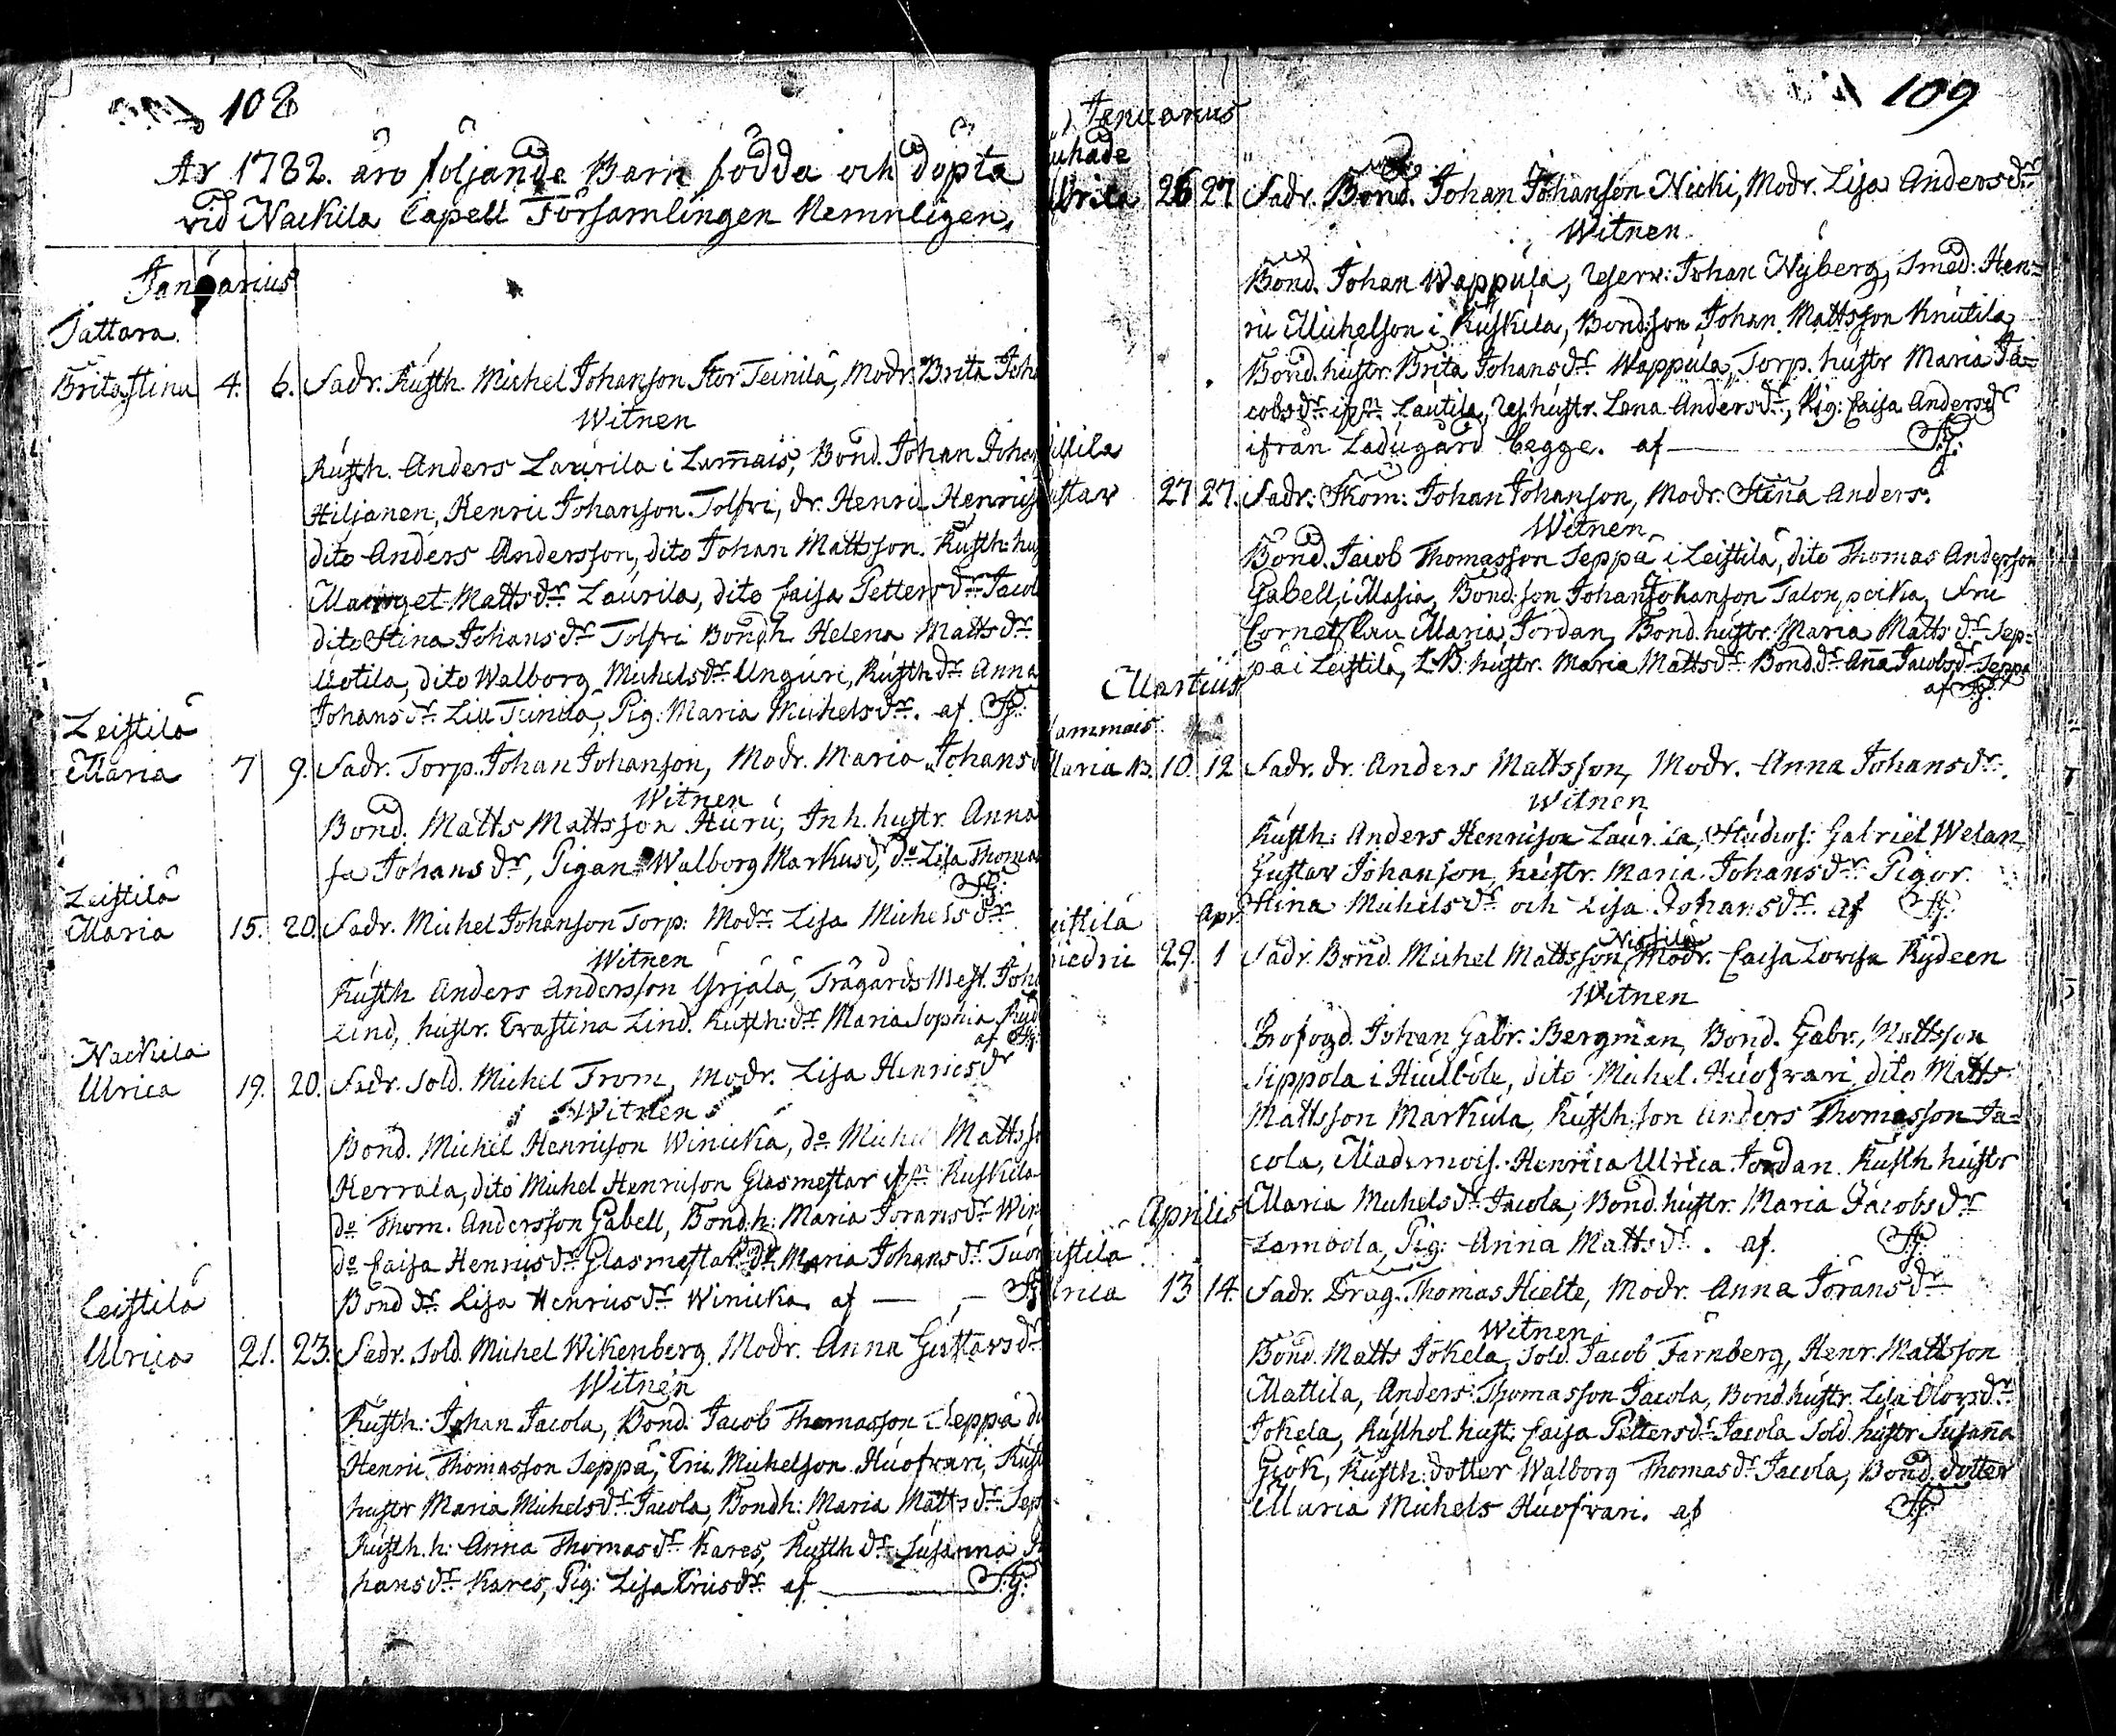 108
År 1782. äro följande Barn födda och döpta
vid Nackila Capell Församlingen Nemnligen.
Januarius
Tattara
Brita Stina 4. 6. Fadr. Rusth. Michel Johanson Stor Teinilä, Modr. Brita Joha
Witnen
Rusth. Anders Laurila i Lam̄ais, Bond. Johan Johan
Hiljanen, Henric Johanson Tolfvi, dr. Henric Henrics
dito Anders Andersson, dito Johan Mattsson. Rusth: hu
Margret Matts dr Laurila, dito Caisa Petters dr Jacol
dito Stina Johans dr Tolfvi Bondh. Helena Matts dr
Uotila, dito Walborg Michels dr Unguri, Rusth dr Anna
Johans dr Lill Teinilä, Pig: Maria Michels dr. af
Leistilä
Maria 7 9. Fadr. Torp. Johan Johanson, Modr. Maria Johans
Witnen
Bond. Matts Mattsson Huru, Inh. hustr. Anna
sa Johans dr, Pigan Walborg Markus dr, do Lisa Thoma
Leistilä
Maria 15. 20. Fadr. Michel Johanson Torp: Modr Lisa Michels dr
Witnen
Rusth Anders Andersson Yrjälä, Trägårds Mest. Joha
Lind, hustr. Lind. Rusth: dr Maria Sophia Ryd
af
Nackila
Ulrica 19. 20. Fadr. Sold. Michel Trom, Modr. Lisa Henrics dr
Witnen
Bond. Michel Henricson Winicka, do Michel Mattss
Kerrala, dito Michel Henricson Glasmestar Ruskila
do Thom. Andersson Gabell, Bondh: Maria Jörans dr Win
do Caisa Henrics dr Glasmestar Maria Johans dr Tuor
Bond dr Lisa Henrics dr Winicka. af
Leistilä
Ulrica 21. 23. Fadr. Sold. Michel Wikenberg, Modr. Anna Gustavs dr
Witnen
Rusth: Johan Jacola, Bond: Jacob Thomasson Seppä
Henric Thomasson Seppä, Eric Michelson Huofvari, Rust
hustr Maria Michels dr Jacola, Bondh: Maria Matts dr Sep
Rusth. h: Anna Thomas dr Kares, Rusth dr Susanna
hans dr Kares, Pig: Lisa Erics dr af
109
Januarius
Brita 26 27 Fadr. Bond. Johan Johanson Nicki, Modr. Lisa Anders dr
Witnen
Bond. Johan Wappula, Reserv: Johan Nyberg, Smed: Hen=
ric Michelson i Ruskila, Bondson Johan Mattsson Knutila
Bond. hustr. Brita Johans dr Wappula, Torp. hustr Maria Ja=
cobs dr Lautila, Res hustr. Lena Anders dr, Pig: Caisa Anders dr
ifrån Ladugård begge. af
istila
ustav 27 27. Fadr: Skom: Johan Johanson, Modr. Stina Anders.
Witnen
Bond. Jacob Thomasson Seppä i Leistilä, dito Thomas Anderson
Gabell i Masia, Bond: son Johan Johanson Talonpoika, Fru
Cornetskan Maria Jordan, Bond. hustr. Maria Matts dr Sep=
pä i Leistilä, hustr. Maria Matts dr Bond. dr An̄a Jacobs dr Seppä
af
Martius
Lammais
Maria 10. 12 Fadr. dr. Anders Mattsson, Modr. Anna Johans dr.
Witnen
Rusth: Anders Henricson Laurila, Studios: Gabriel Welan,
Gustav Johanson, hustr. Maria Johans dr Pigor
Stina Michels dr och Lisa Johans dr. af
eistilä Apr.
riedric 29. 1 Fadr. Bond. Michel Mattsson Modr. Caisa Lovisa Rydeen
Witnen
Profogd. Johan Gabr: Bergman, Bond. Gabr. Mattsson
Sippola i Hiulböle, dito Michel Huofvari dito Matts
Mattsson Markula, Rusth: son Anders Thomasson Ja=
cola, Mademois. Henrica Ulrica Jordan. Rusth hustr
Maria Michels dr Jacola, Bond. hustr. Maria Jacobs dr
Lambola, Pig: Anna Matts dr. af.
Aprilis
eistila
lrica 13 14. Fadr. Drag. Thomas Hielte, Modr. Anna Jörans dr
Witnen
Bond. Matts Jokela, Sold. Jacob Färnberg, Henr. Mattsson
Mattila, Anders Thomasson Jacola, Bond. hustr. Lisa Olovs dr
Jokela, Rusthol. hust: Caisa Petters dr Jacola Sold. hustr Susan̄a
Giök, Rusth: dotter Walborg Thomas dr Jacola, Bond. dotter
Maria Michels Huofvari. af